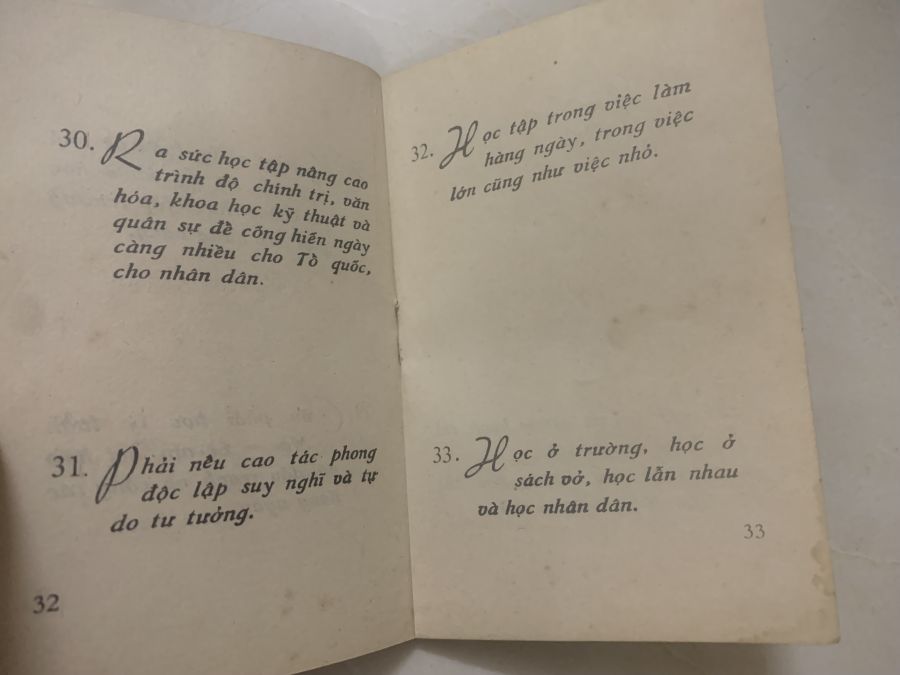 30. Ra sức học tập nâng cao
trình độ chính trị, văn
hóa, khoa học kỹ thuật và
quân sự để cống hiến ngày
càng nhiều cho Tổ quốc,
cho nhân dân.
31. Phải nêu cao tác phong
độc lập suy nghĩ và tự
do tư tưởng.
32
32. Học tập trong việc làm
hàng ngày, trong việc
lớn cũng như việc nhỏ.
33. Học ở trường, học ở
sách vở, học lẫn nhau
và học nhân dân.
33